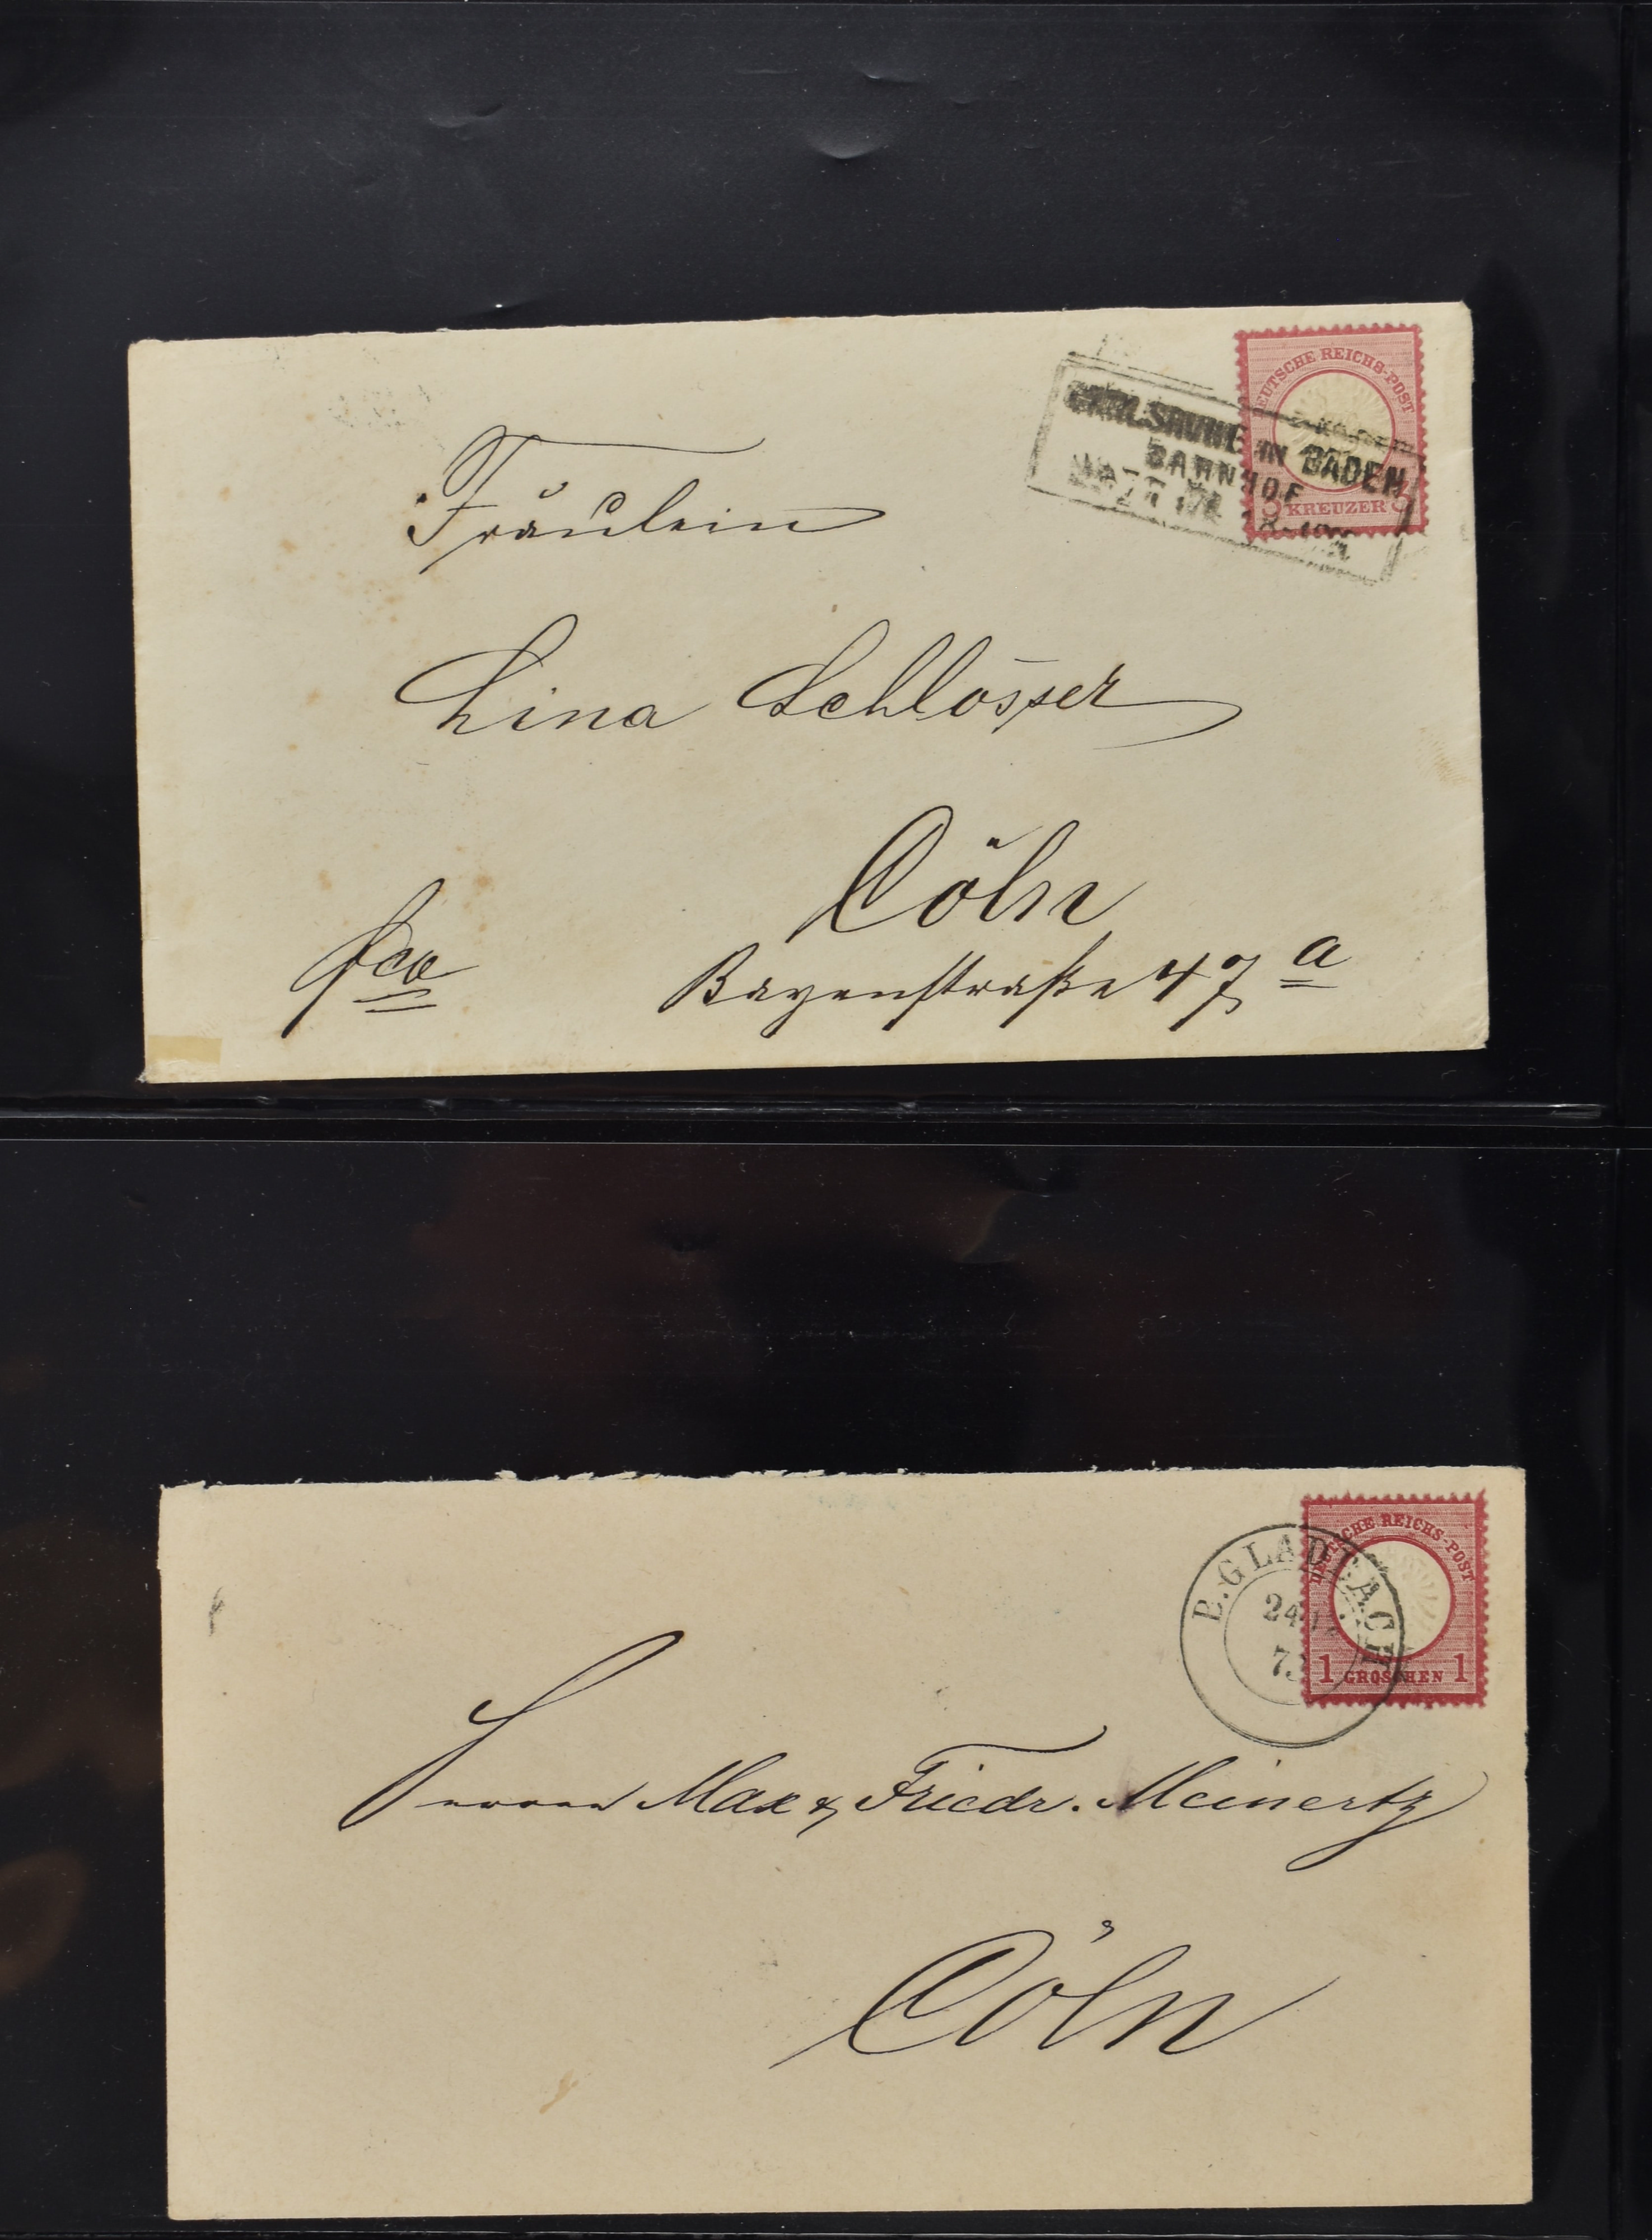 DEUTSCHE REICHS-POST
CARLSRUHE IN BADEN
BAHNHOF
3 KREUZER 3
Fräulein
Lina Schlösser
Cöln
fco
Bayenstraße 47 a
DEUTSCHE REICHS-POST
B. GLADBACH
24
73
1 GROSCHEN 1
Herren Max & Friedr. Meinertz
Cöln